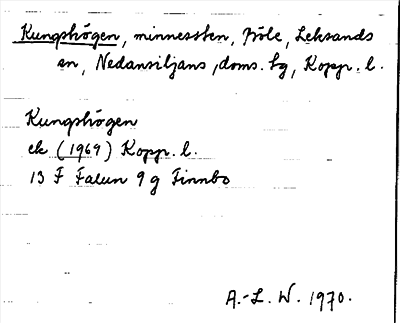 Kungshögen, minnessten, Fröle, Leksands
sn, Nedansiljans, doms. hg, Kopp. l.
Kungshögen
ek (1969) Kopp. l.
13 F Falun 9 g Finnbo
A.-L. W. 1970.